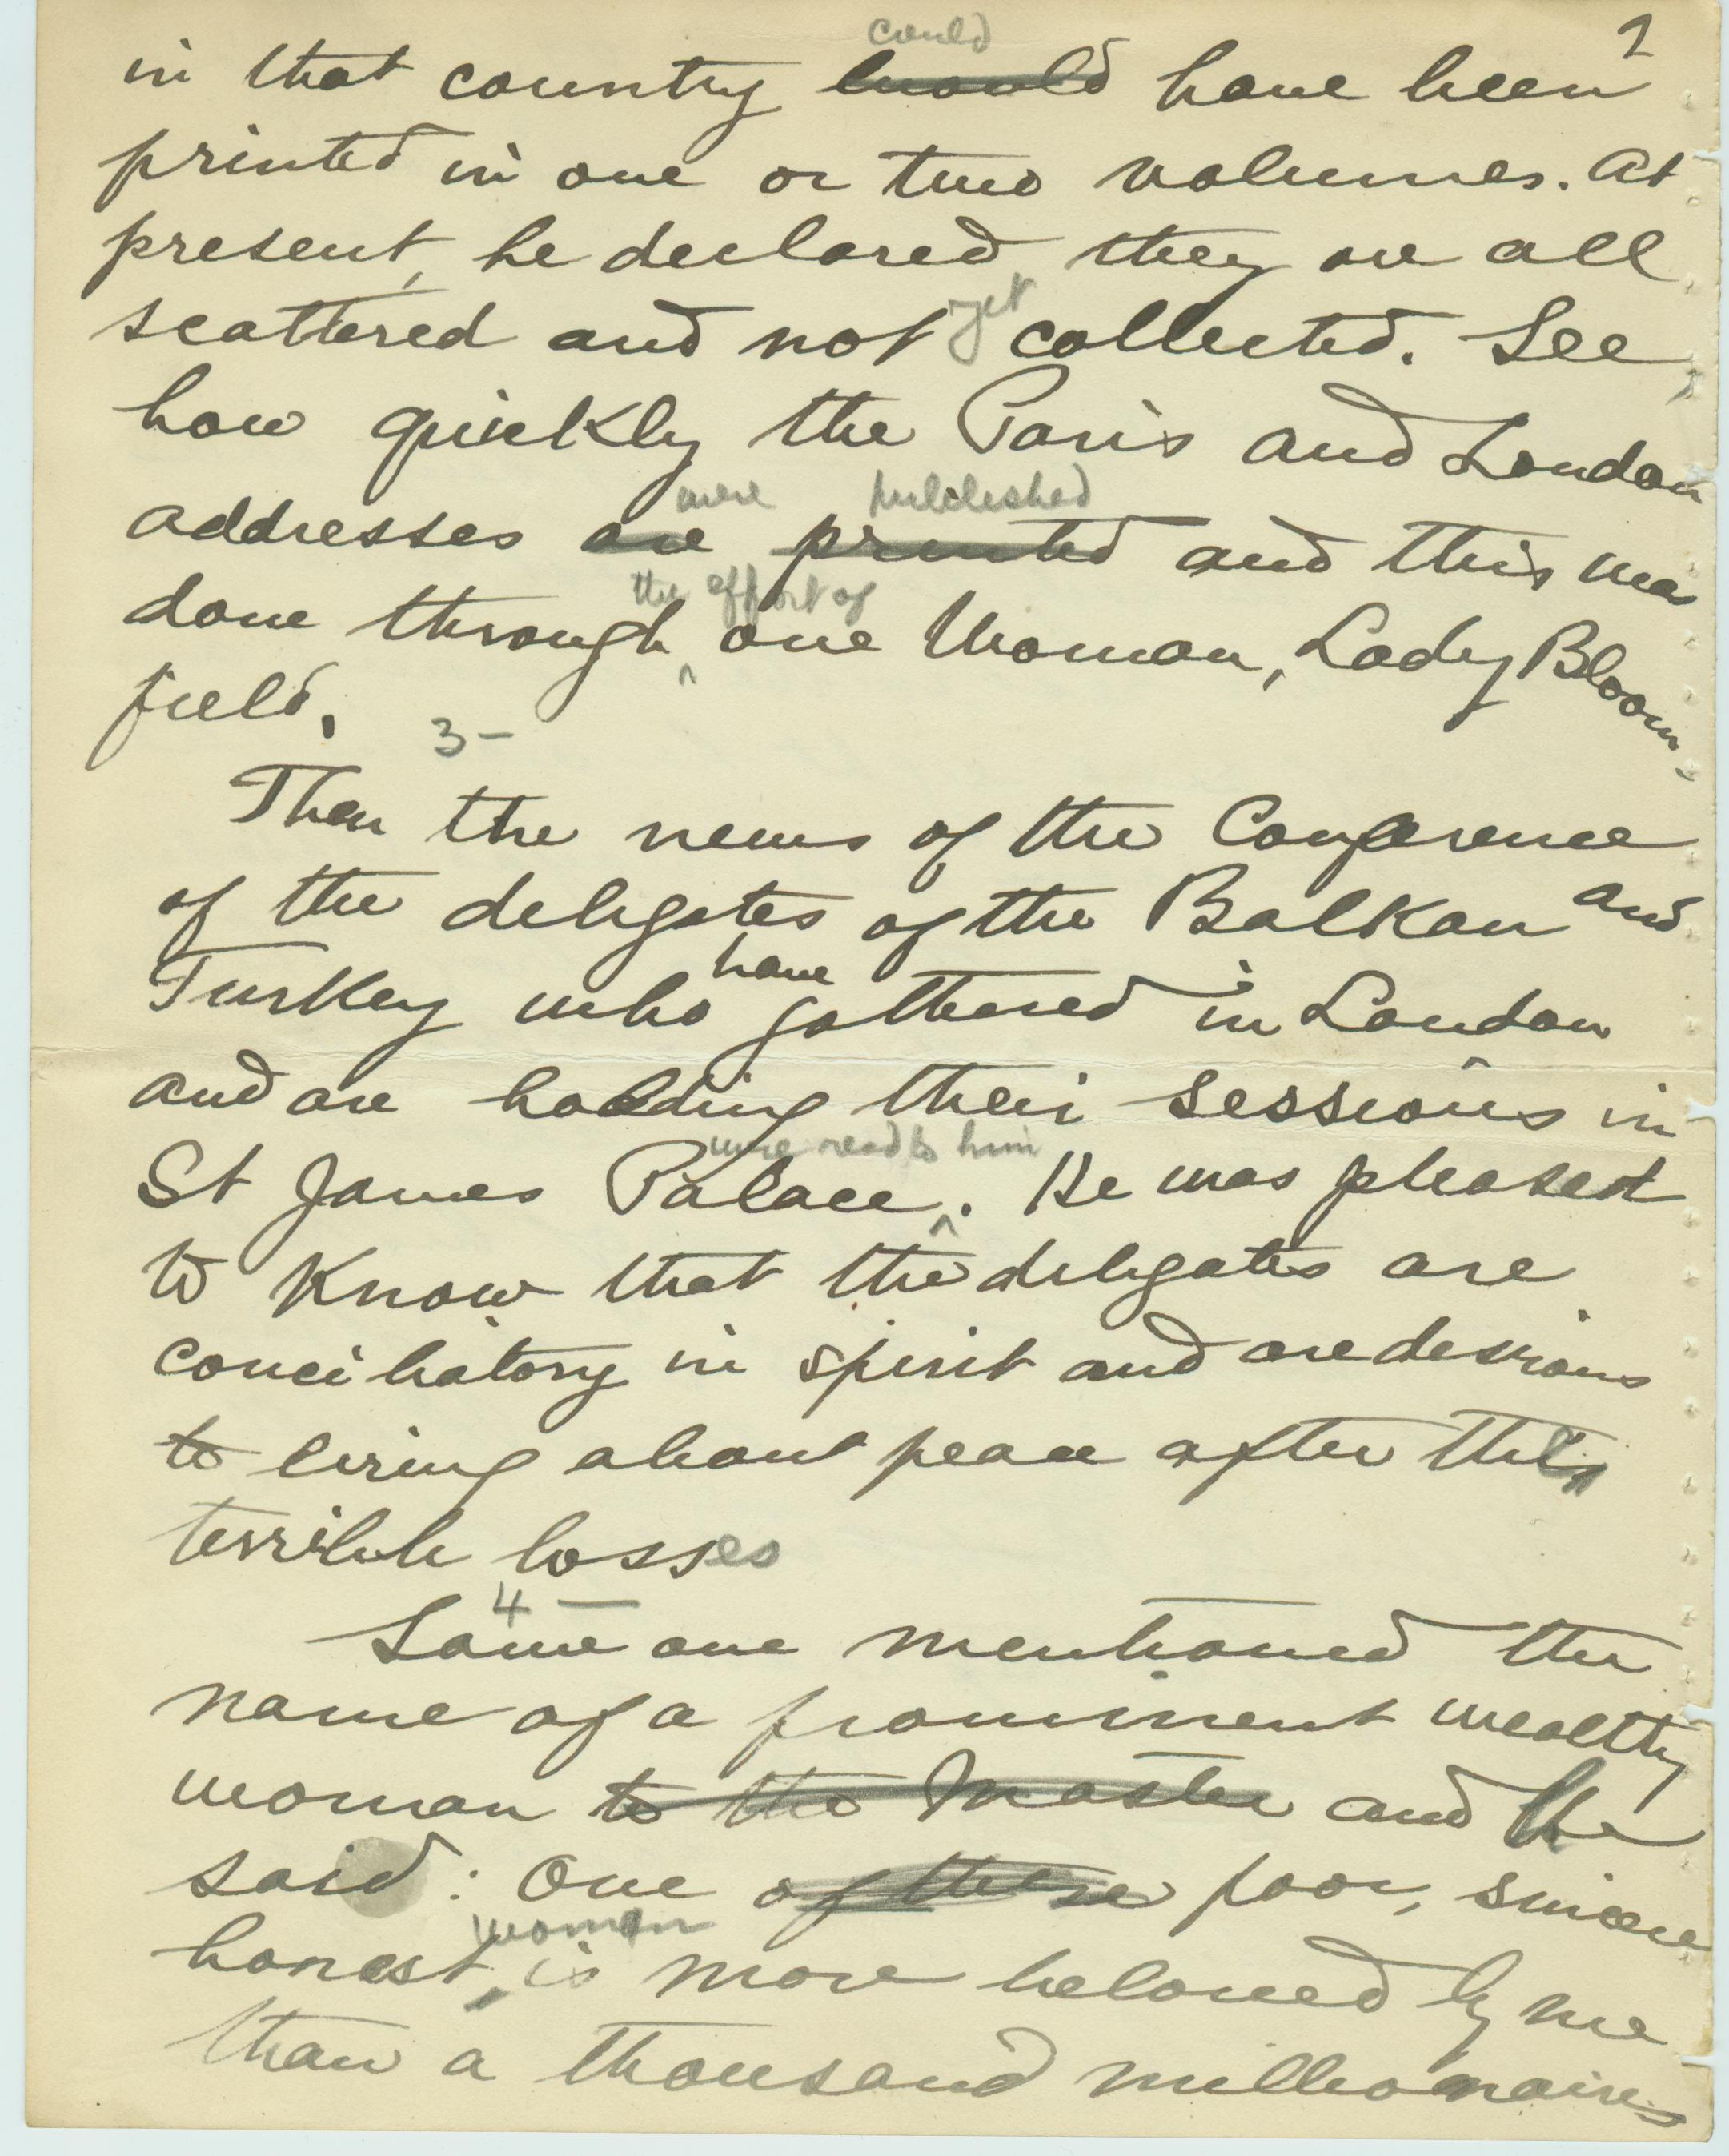 2
could
in that country would have been
printed in one or two volumes. At
present, he declared they are all
scattered and not yet collected. See,
how quickly the Paris and London
were published
addresses are printed and this was
the effort of
done through ^ one Woman, Lady Bloom-
field.
3-
Then the news of the Conference
of the delegates of the Balkan and
have
Turkey who gathered in London
and are holding their sessions in
were read to him
St James Palace ^. He was pleased
to Know that the delegates are
conciliatory in spirit and are desirous
to bring about peace after this
terrible losses
4 -
Some one mentioned the
name of a prominent wealthy
woman to the Master and He
said: One of these poor, sincere
woman
honest, is more beloved by me
than a thousand millionaires